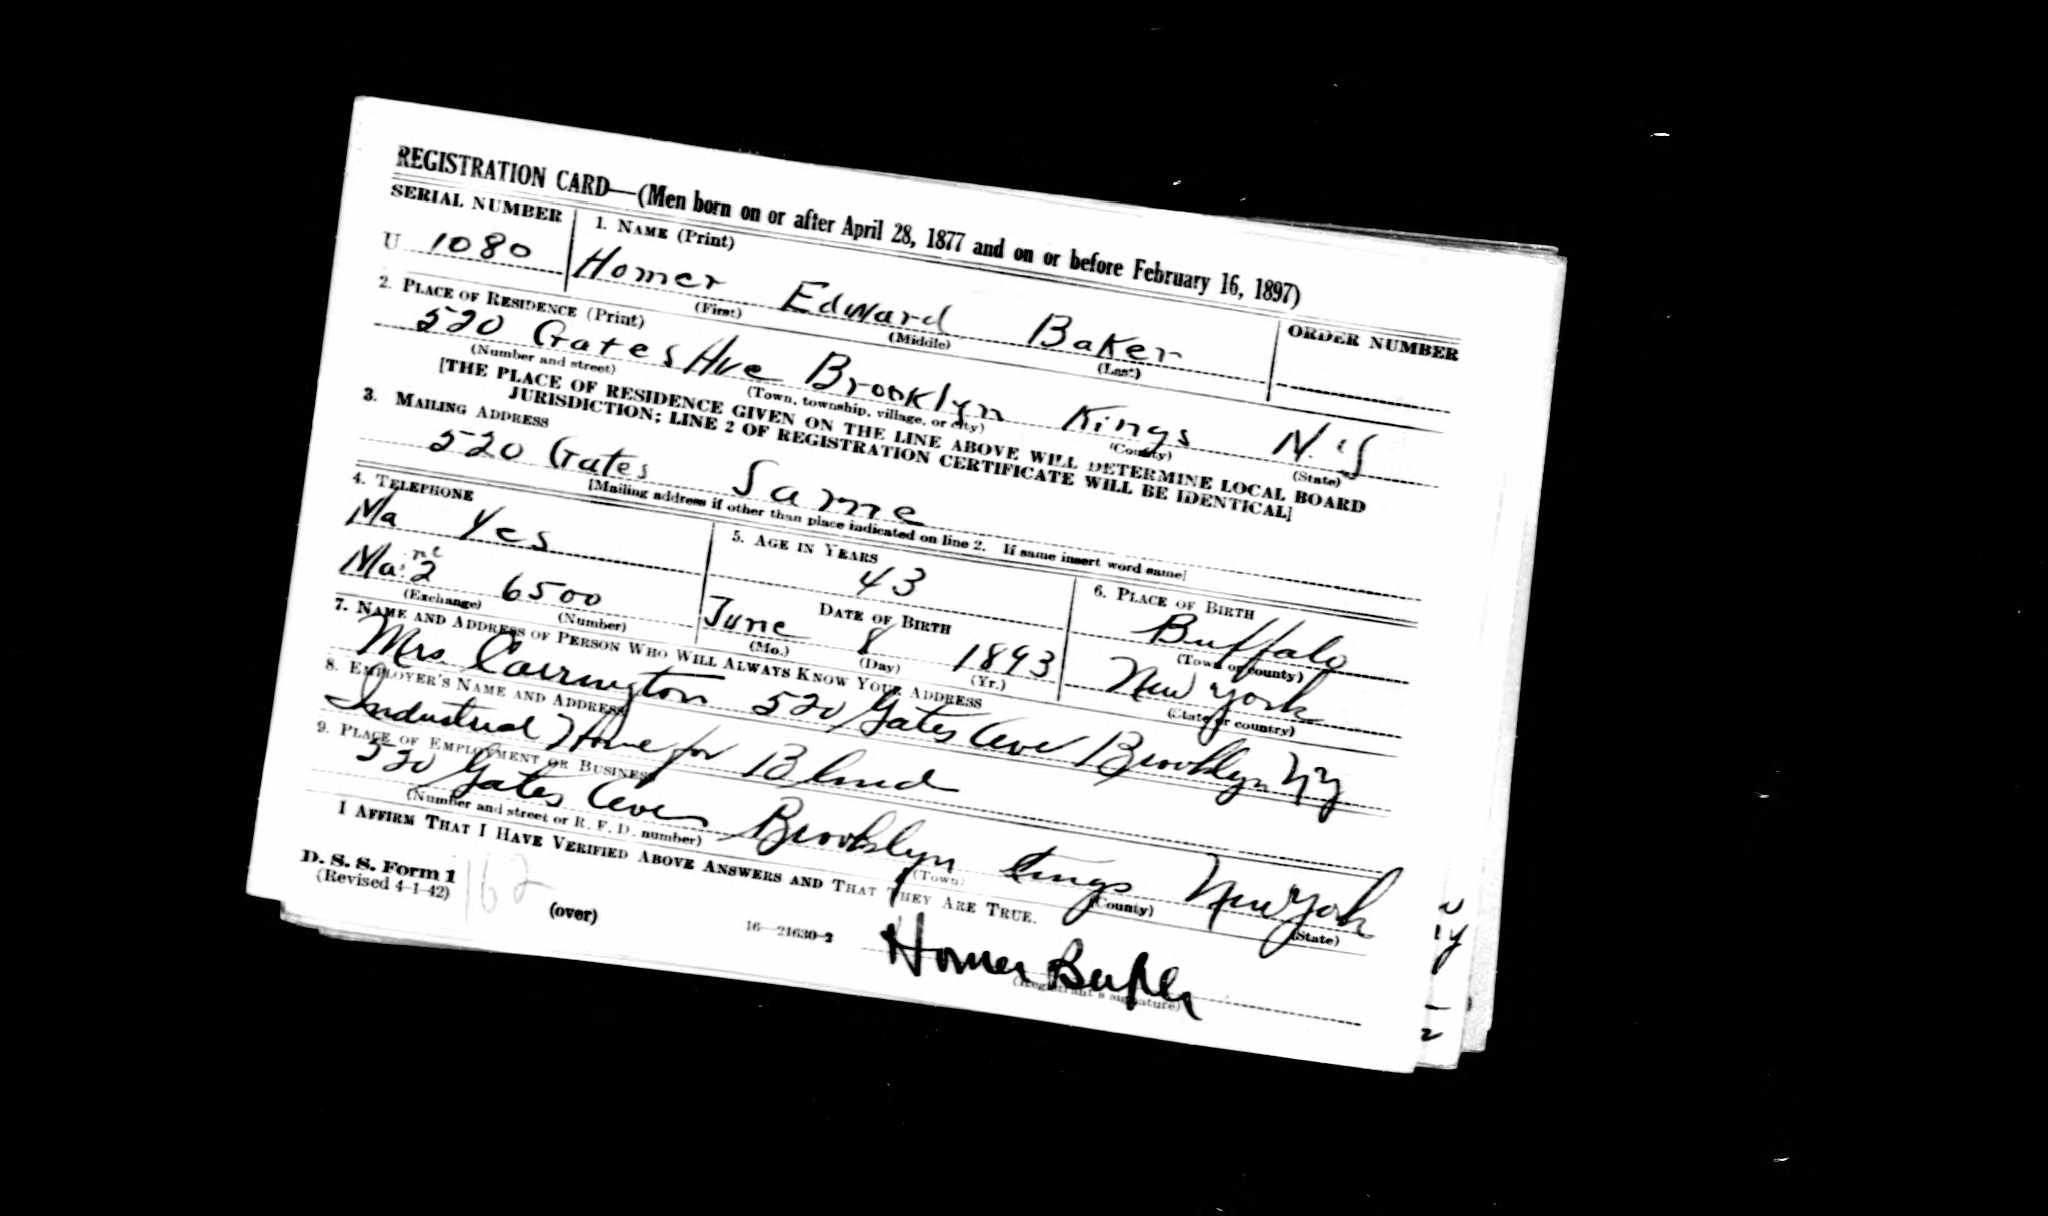 REGISTRATION CARD—(Men born on or after April 28, 1877 and on or before February 16, 1897)
SERIAL NUMBER
1. NAME (Print)
ORDER NUMBER
U 1080
Homer Edward Baker
(First) (Middle) (Last)
2. PLACE OF RESIDENCE (Print)
520 Gates Ave Brooklyn Kings N.Y
(Number and street) (Town, township, village, or city) (County) (State)
[THE PLACE OF RESIDENCE GIVEN ON THE LINE ABOVE WILL DETERMINE LOCAL BOARD
JURISDICTION; LINE 2 OF REGISTRATION CERTIFICATE WILL BE IDENTICAL]
3. MAILING ADDRESS
520 Gates Same
[Mailing address if other than place indicated on line 2. If same insert word same]
4. TELEPHONE
Ma Yes
Ma 2 6500
(Exchange) (Number)
5. AGE IN YEARS
43
DATE OF BIRTH
June 8 1893
(Mo.) (Day) (Yr.)
6. PLACE OF BIRTH
Buffalo
(Town or county)
New York
(State or country)
7. NAME AND ADDRESS OF PERSON WHO WILL ALWAYS KNOW YOUR ADDRESS
Mrs. Carrington 520 Gates Ave Brooklyn NY
8. EMPLOYER'S NAME AND ADDRESS
Industrial Home for Blind
9. PLACE OF EMPLOYMENT OR BUSINESS
520 Gates Ave Brooklyn Kings New York
(Number and street or R. F. D. number) (Town) (County) (State)
I AFFIRM THAT I HAVE VERIFIED ABOVE ANSWERS AND THAT THEY ARE TRUE.
D. S. S. Form 1
(Revised 4-1-42)
162
(over)
16—21630-2
Homer Baker
(Registrant's signature)